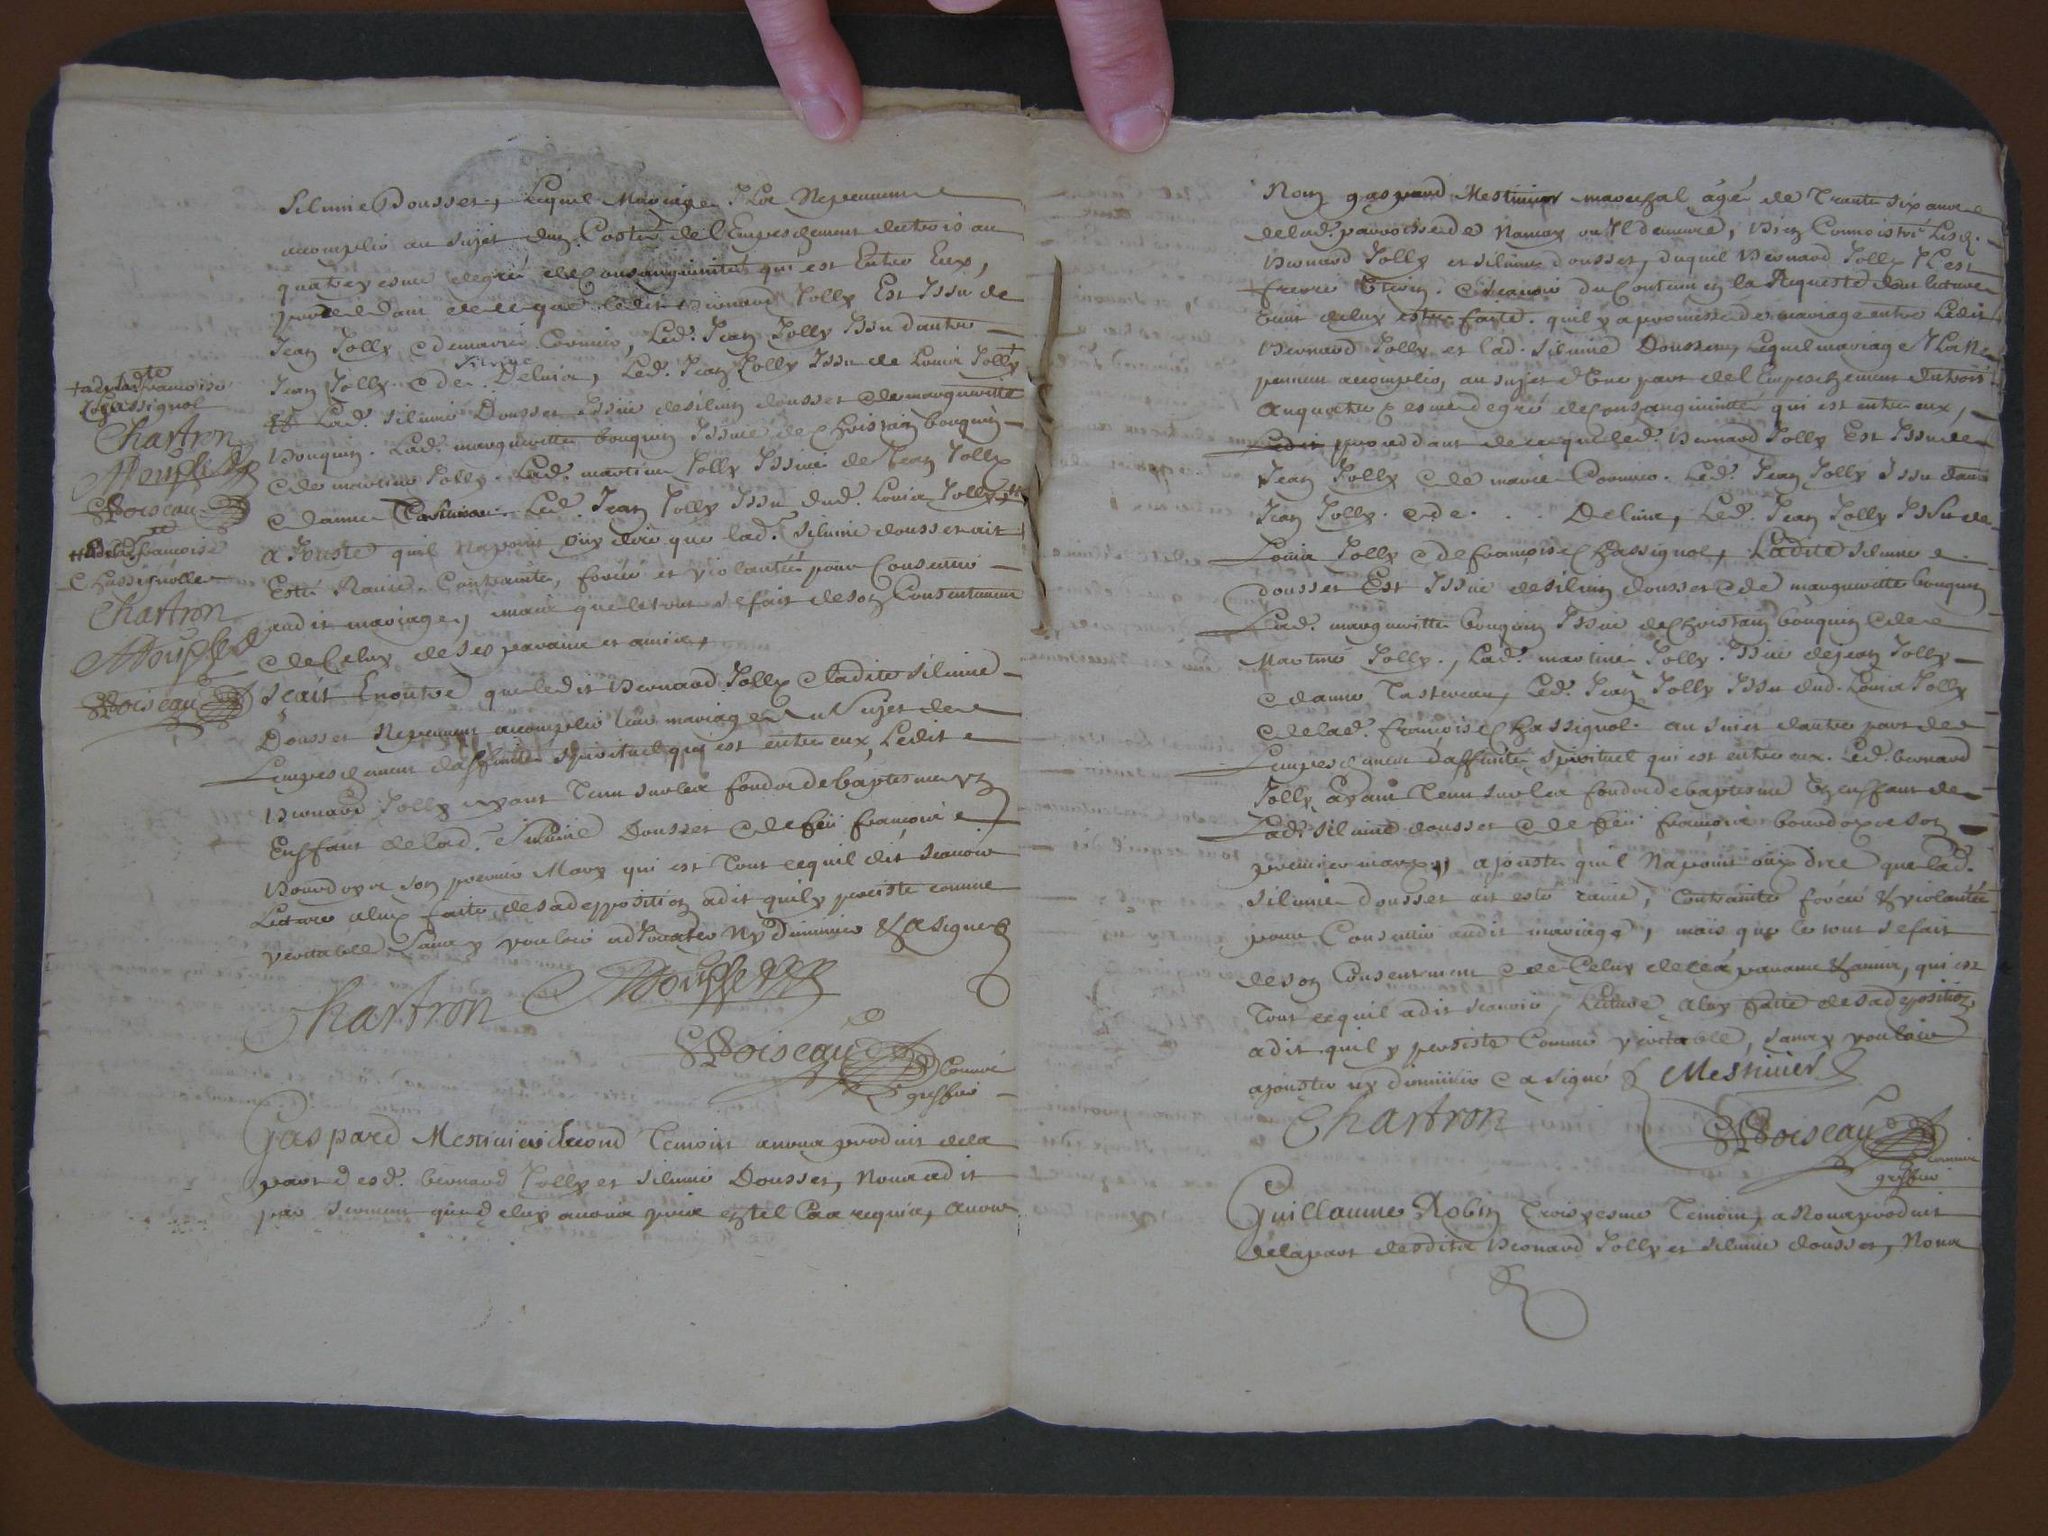 Silvine Dousset, Lequel Mariage Ilz Ne peuvent
accomplir au sujet dun Costé de l'Empeschement du trois au
quatreyesme degré de Consanguinité qui est Entre Eux,
proceddant de ce que ledit Bernard Jolly Est Issu de
Jean Jolly & de marie Cormier, Led. Jean Jolly Issu d'autre
Jean Jolly & de Silvine Deluia, Led. Jean Jolly Issu de Louis Jolly +
Lad. Silvine Dousset Issue de silvin dousset & de margueritte
Bouquin. Lad. margueritte bouquin Issue de Christain bouquin
& de martine Jolly. Lad. martine Jolly Issue de Jean Jolly
& danne Tastereau. Led. Jean Jolly Issu dud. Louis Jolly
ajouste quil Na point ouy dire que lad. Silvine dousset ait
Esté Ravie, Contrainte, forcée et violantée pour Consentir
audit mariage, mais que le tout se fait de son Consentement
& de Celuy de ses parans et amis,
Scait Enoutre que ledit Bernard Jolly & ladite Silvine
Dousset Ne peuvent accomplir leur mariage au Sujet de
Lempeschement daffinité spirituel qui est entre eux, Ledit
Bernard Jolly ayant Tenu sur les fonds de baptesme un
Enffant de lad. Silvine Dousset & de feu françois
Bourdoys son premier Mary qui est Tout ce quil dit scavoir
Lecture a luy faite de sa depposition a dit quil y persiste comme
veritable Sans y vouloir adjouster Ny Diminuer & a Signé
Chartron
Boiseau
Commis
greffier
Gaspard Mesnier second Temoin a nous produit de la
part desd. bernard Jolly et silvine Dousset, Nous a dit
par serment que de luy avons pris en tel Cas requis, avoir
+ & de lad.te françoise
Chassignol
Chartron
Boiseau
++ & de lad. françoise
Chassignolle
Chartron
Boiseau
Nom gaspard Mesnier mareschal âgé de Trante six ans
de lad. parroisse de où Il demeure, Bien Connoistre Lesd.
Bernard Jolly et silvine dousset, duquel Bernard Jolly Il est
frere Scavoir du Contenu en la Requeste dont lecture
a luy estre faite. quil y a promesse de mariage entre Ledit
Bernard Jolly et lad. silvine Dousset, Lequel mariage Ilz Ne
peuvent accomplir, au sujet d'Une part de l'Empeschement du trois
au quatreyesme degré de Consanguinitté qui est entre eux,
procceddant de ce que led. Bernard Jolly Est Issu de
Jean Jolly & de marie Cormier. Led. Jean Jolly Issu dautre
Jean Jolly. & de . . . Deluia, Led. Jean Jolly Issu de
Louis Jolly & de françoise Chassignol, Ladite silvine
dousset Est Issue de silvin dousset & de margueritte bouquin
Lad. margueritte bouquin Issue de Christain bouquin & de
Martine Jolly., Lad. martine Jolly Issue de jean Jolly
& danne Tastereau, Led. Jean Jolly Issu dud. Louis Jolly
& de lad. françoise Chassignol. au sujet dautre part de
Lempeschement daffinité spirituel qui est entre eux. Led. bernard
Jolly ayant Tenu sur les fonds de baptesme Un enffant de
Lad. silvine dousset & de feu françois bourdoys son
premier mary, ajouste quil Na point ouy dire que lad.
silvine dousset ait esté ravie, Contrainte forcée & violantée
pour Consentir audit mariage, mais que le tout se fait
de son Consentement & de Celuy de ses parans & amis, qui est
Tout ce quil a dit scavoir, Lecture a luy faite de sa deposition
a dit quil y persiste Comme veritable, sans y vouloir
ajouster ny diminuer & a signé Mesnier
Chartron
Boiseau
commis
greffier
Guillaume Robin Troisyesme Temoin, a Nous produit
de la part desdits Bernard Jolly et silvine dousset, Nous